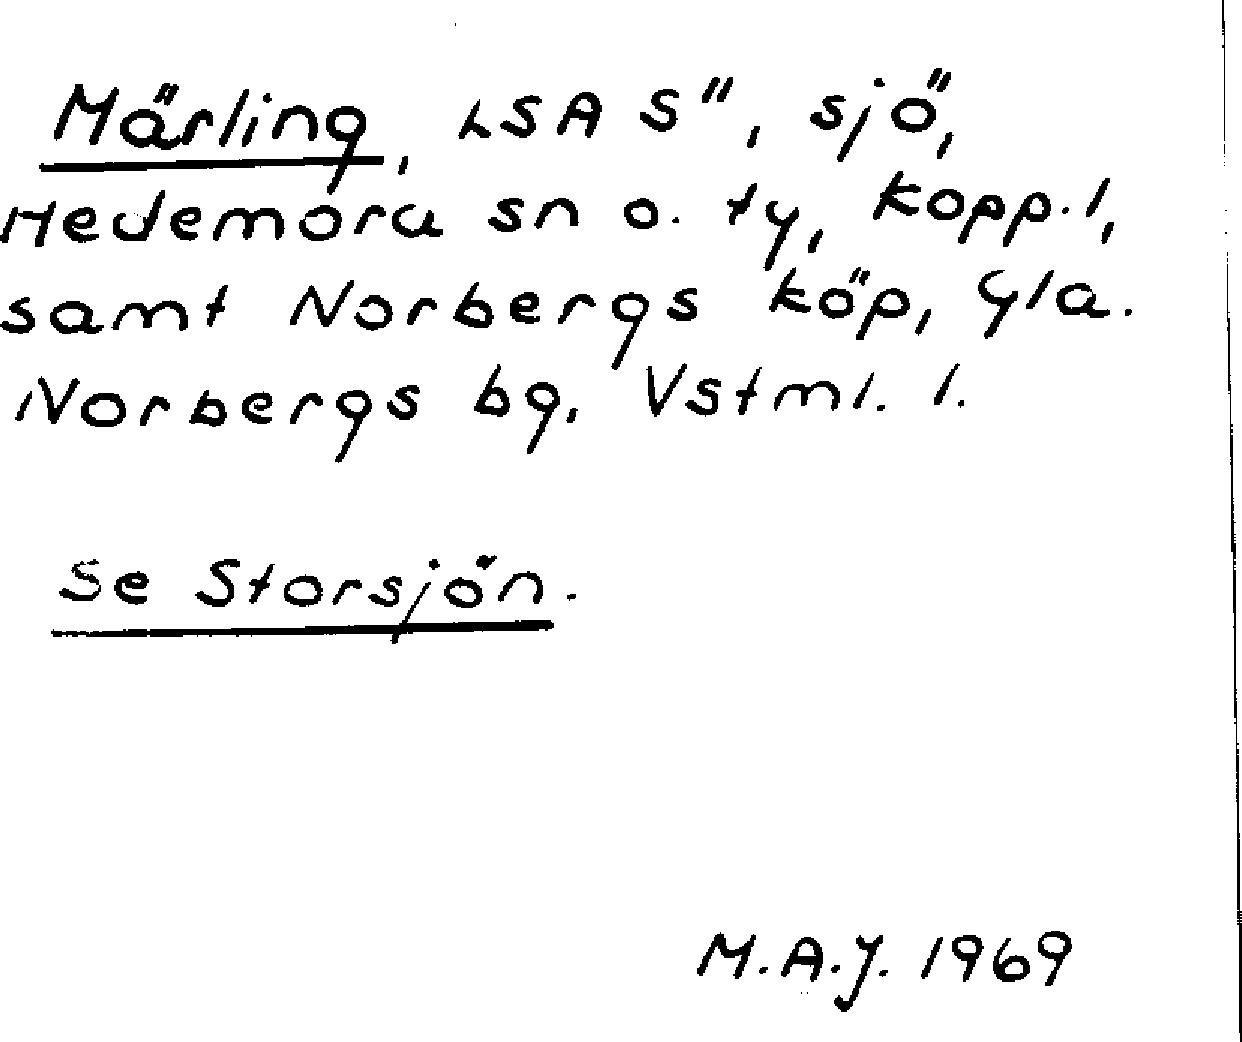 Märling, LSA S", sjö,
Hedemora sn o. ty, Kopp. l,
samt Norbergs köp, Gla.
Norbergs bg, Vstml. l.
Se Storsjön.
M.A.J. 1969